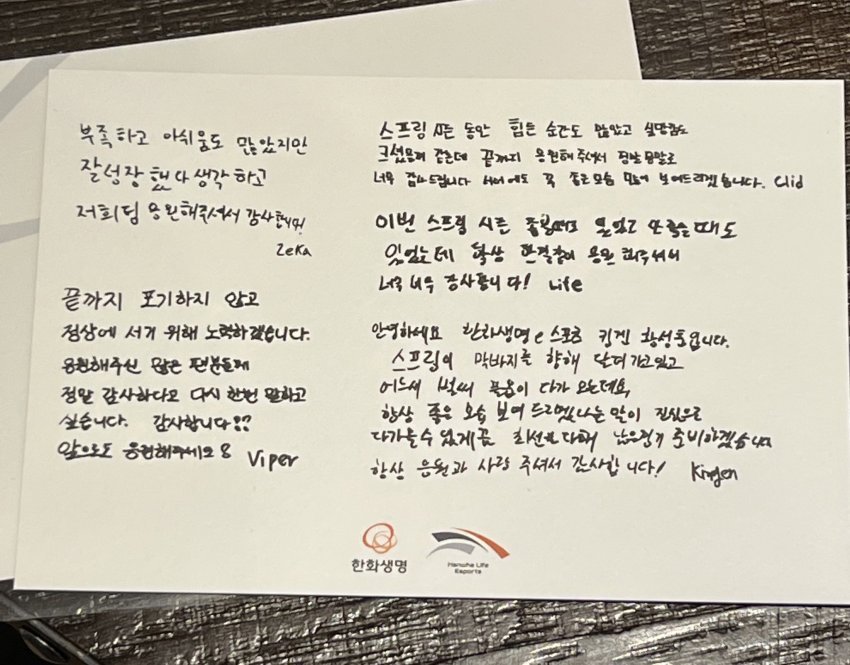 부족하고 아쉬움도 많았지만
잘 성장 했다 생각 하고
저희팀 응원해주셔서 감사합니다!
Zeka
끝까지 포기하지 않고
정상에 서기 위해 노력하겠습니다.
응원해주신 많은 팬분들께
정말 감사하다고 다시 한번 말하고
싶습니다. 감사합니다
앞으로도 응원해주세요 Viper
스프링 시즌 동안 힘든 순간도 많았고 실망감도
크셨을거 같은데 끝까지 응원해 주셔서 정말 정말로
너무 감사드립니다 서머에도 꼭 좋은모습 보여드리겠습니다. Clid
이번 스프링 시즌 좋을때도 있었고 안좋을때도
있었는데 항상 한결같이 응원 해주셔서
너무 너무 감사합니다! Life
안녕하세요 한화생명e스포츠 킹겐 황성훈입니다.
스프링이 막바지를 향해 달려가고있고
어느새 벌써 봄이 다가 오는데요,
항상 좋은 모습 보여 드리겠다는 말이 진심으로
다가올수 있게끔 최선을 다해 남은경기 준비하겠습니다
항상 응원과 사랑 주셔서 감사합니다! Kingen
한화생명
Hanwha Life
Esports